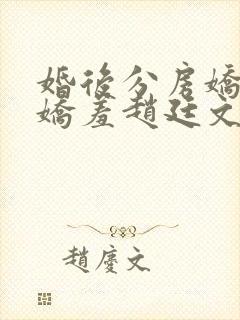 婚後分房嬌
嬌羞趙廷文
趙慶文